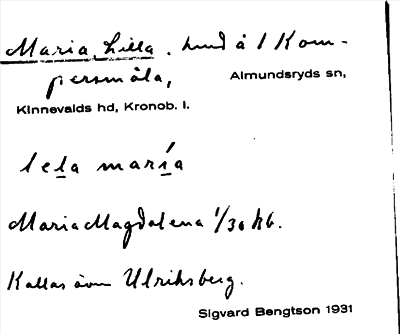 Maria, Lilla. hmd å 1 Kom-
persmåla, Almundsryds sn,
Kinnevalds hd, Kronob. l.
lela maría
Maria Magdalena 1/30 kb.
Kallas även Ulriksberg.
Sigvard Bengtson 1931